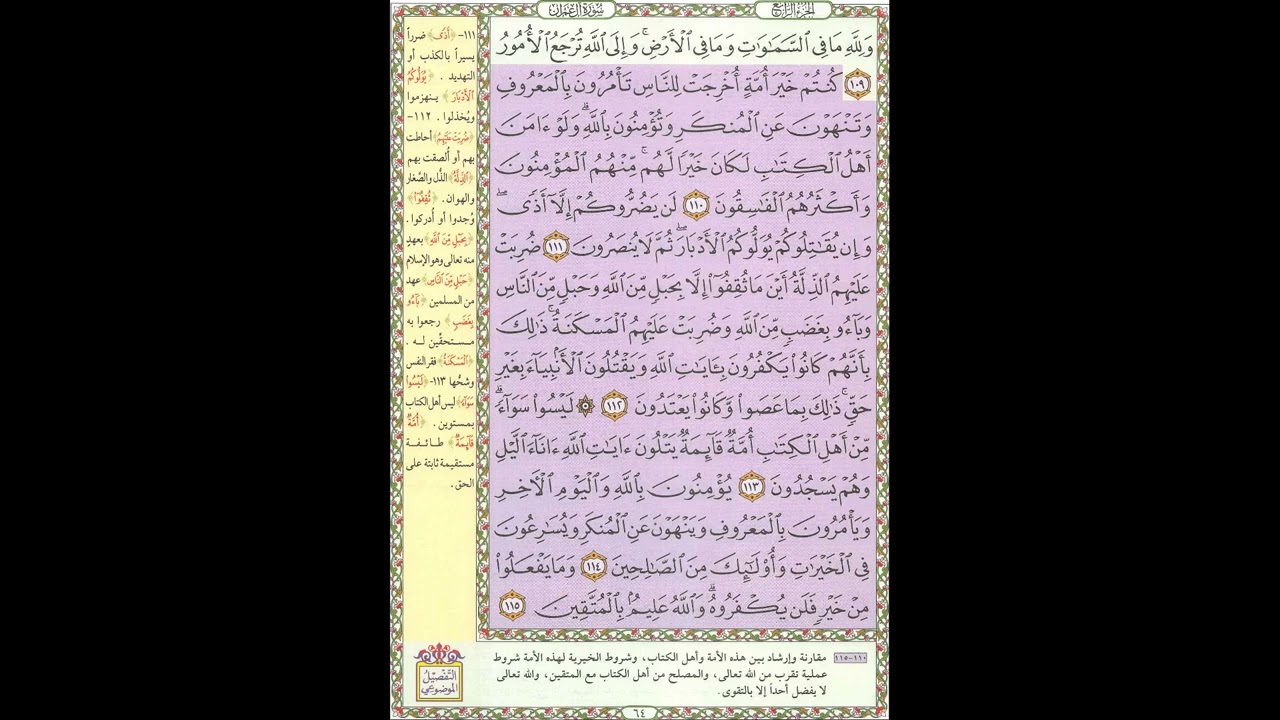 الجزء الرابع
سورة آل عمران
وَلِلَّهِ مَا فِي السَّمَٰوَٰتِ وَمَا فِي الْأَرْضِ ۚ وَإِلَى اللَّهِ تُرْجَعُ الْأُمُورُ
﴿١٠٩﴾ كُنتُمْ خَيْرَ أُمَّةٍ أُخْرِجَتْ لِلنَّاسِ تَأْمُرُونَ بِالْمَعْرُوفِ
وَتَنْهَوْنَ عَنِ الْمُنكَرِ وَتُؤْمِنُونَ بِاللَّهِ ۗ وَلَوْ ءَامَنَ
أَهْلُ الْكِتَٰبِ لَكَانَ خَيْرًا لَّهُم ۚ مِّنْهُمُ الْمُؤْمِنُونَ
وَأَكْثَرُهُمُ الْفَٰسِقُونَ ﴿١١٠﴾ لَن يَضُرُّوكُمْ إِلَّا أَذًى ۖ
وَإِن يُقَٰتِلُوكُمْ يُوَلُّوكُمُ الْأَدْبَارَ ۖ ثُمَّ لَا يُنصَرُونَ ﴿١١١﴾ ضُرِبَتْ
عَلَيْهِمُ الذِّلَّةُ أَيْنَ مَا ثُقِفُوا إِلَّا بِحَبْلٍ مِّنَ اللَّهِ وَحَبْلٍ مِّنَ النَّاسِ
وَبَاءُو بِغَضَبٍ مِّنَ اللَّهِ وَضُرِبَتْ عَلَيْهِمُ الْمَسْكَنَةُ ۚ ذَٰلِكَ
بِأَنَّهُمْ كَانُوا يَكْفُرُونَ بِـَٔايَٰتِ اللَّهِ وَيَقْتُلُونَ الْأَنۢبِيَاءَ بِغَيْرِ
حَقٍّ ۚ ذَٰلِكَ بِمَا عَصَوا وَّكَانُوا يَعْتَدُونَ ﴿١١٢﴾ ۞ لَيْسُوا سَوَاءً ۗ
مِّنْ أَهْلِ الْكِتَٰبِ أُمَّةٌ قَائِمَةٌ يَتْلُونَ ءَايَٰتِ اللَّهِ ءَانَاءَ الَّيْلِ
وَهُمْ يَسْجُدُونَ ﴿١١٣﴾ يُؤْمِنُونَ بِاللَّهِ وَالْيَوْمِ الْآخِرِ
وَيَأْمُرُونَ بِالْمَعْرُوفِ وَيَنْهَوْنَ عَنِ الْمُنكَرِ وَيُسَٰرِعُونَ
فِي الْخَيْرَٰتِ وَأُولَٰئِكَ مِنَ الصَّٰلِحِينَ ﴿١١٤﴾ وَمَا يَفْعَلُوا
مِنْ خَيْرٍ فَلَن يُكْفَرُوهُ ۗ وَاللَّهُ عَلِيمٌۢ بِالْمُتَّقِينَ ﴿١١٥﴾
١١١- ﴿أَذًى﴾ ضرراً
يسيراً بالكذب أو
التهديد. ﴿يُوَلُّوكُمُ
الْأَدْبَارَ﴾ ينهزموا
ويُخذلوا. ١١٢-
﴿ضُرِبَتْ عَلَيْهِمُ﴾ أحاطت
بهم أو ألصقت بهم
﴿الذِّلَّةُ﴾ الذّل والصّغار
والهوان. ﴿ثُقِفُوا﴾
وُجدوا أو أُدركوا.
﴿بِحَبْلٍ مِّنَ اللَّهِ﴾ بعهدٍ
منه تعالى وهو الإسلام
﴿حَبْلٍ مِّنَ النَّاسِ﴾ عهد
من المسلمين ﴿بَاءُو
بِغَضَبٍ﴾ رجعوا به
مستحقّين له.
﴿الْمَسْكَنَةُ﴾ فقر النفس
وشحّها ١١٣- ﴿لَيْسُوا
سَوَاءً﴾ ليس أهل الكتاب
بمستوين. ﴿أُمَّةٌ
قَائِمَةٌ﴾ طائفة
مستقيمة ثابتة على
الحق.
١١٠-١١٥ مقارنة وإرشاد بين هذه الأمة وأهل الكتاب، وشروط الخيرية لهذه الأمة شروط
عملية تقرب من الله تعالى، والمصلح من أهل الكتاب مع المتقين، والله تعالى
لا يفضل أحداً إلا بالتقوى.
التفصيل
الموضوعي
٦٤